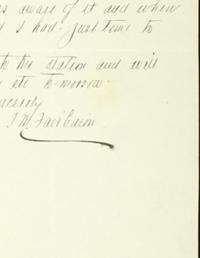 aware of it and when
I had just time to
to the station and will
etc to-morrow.
Sincerely
J. M. Fairbairn